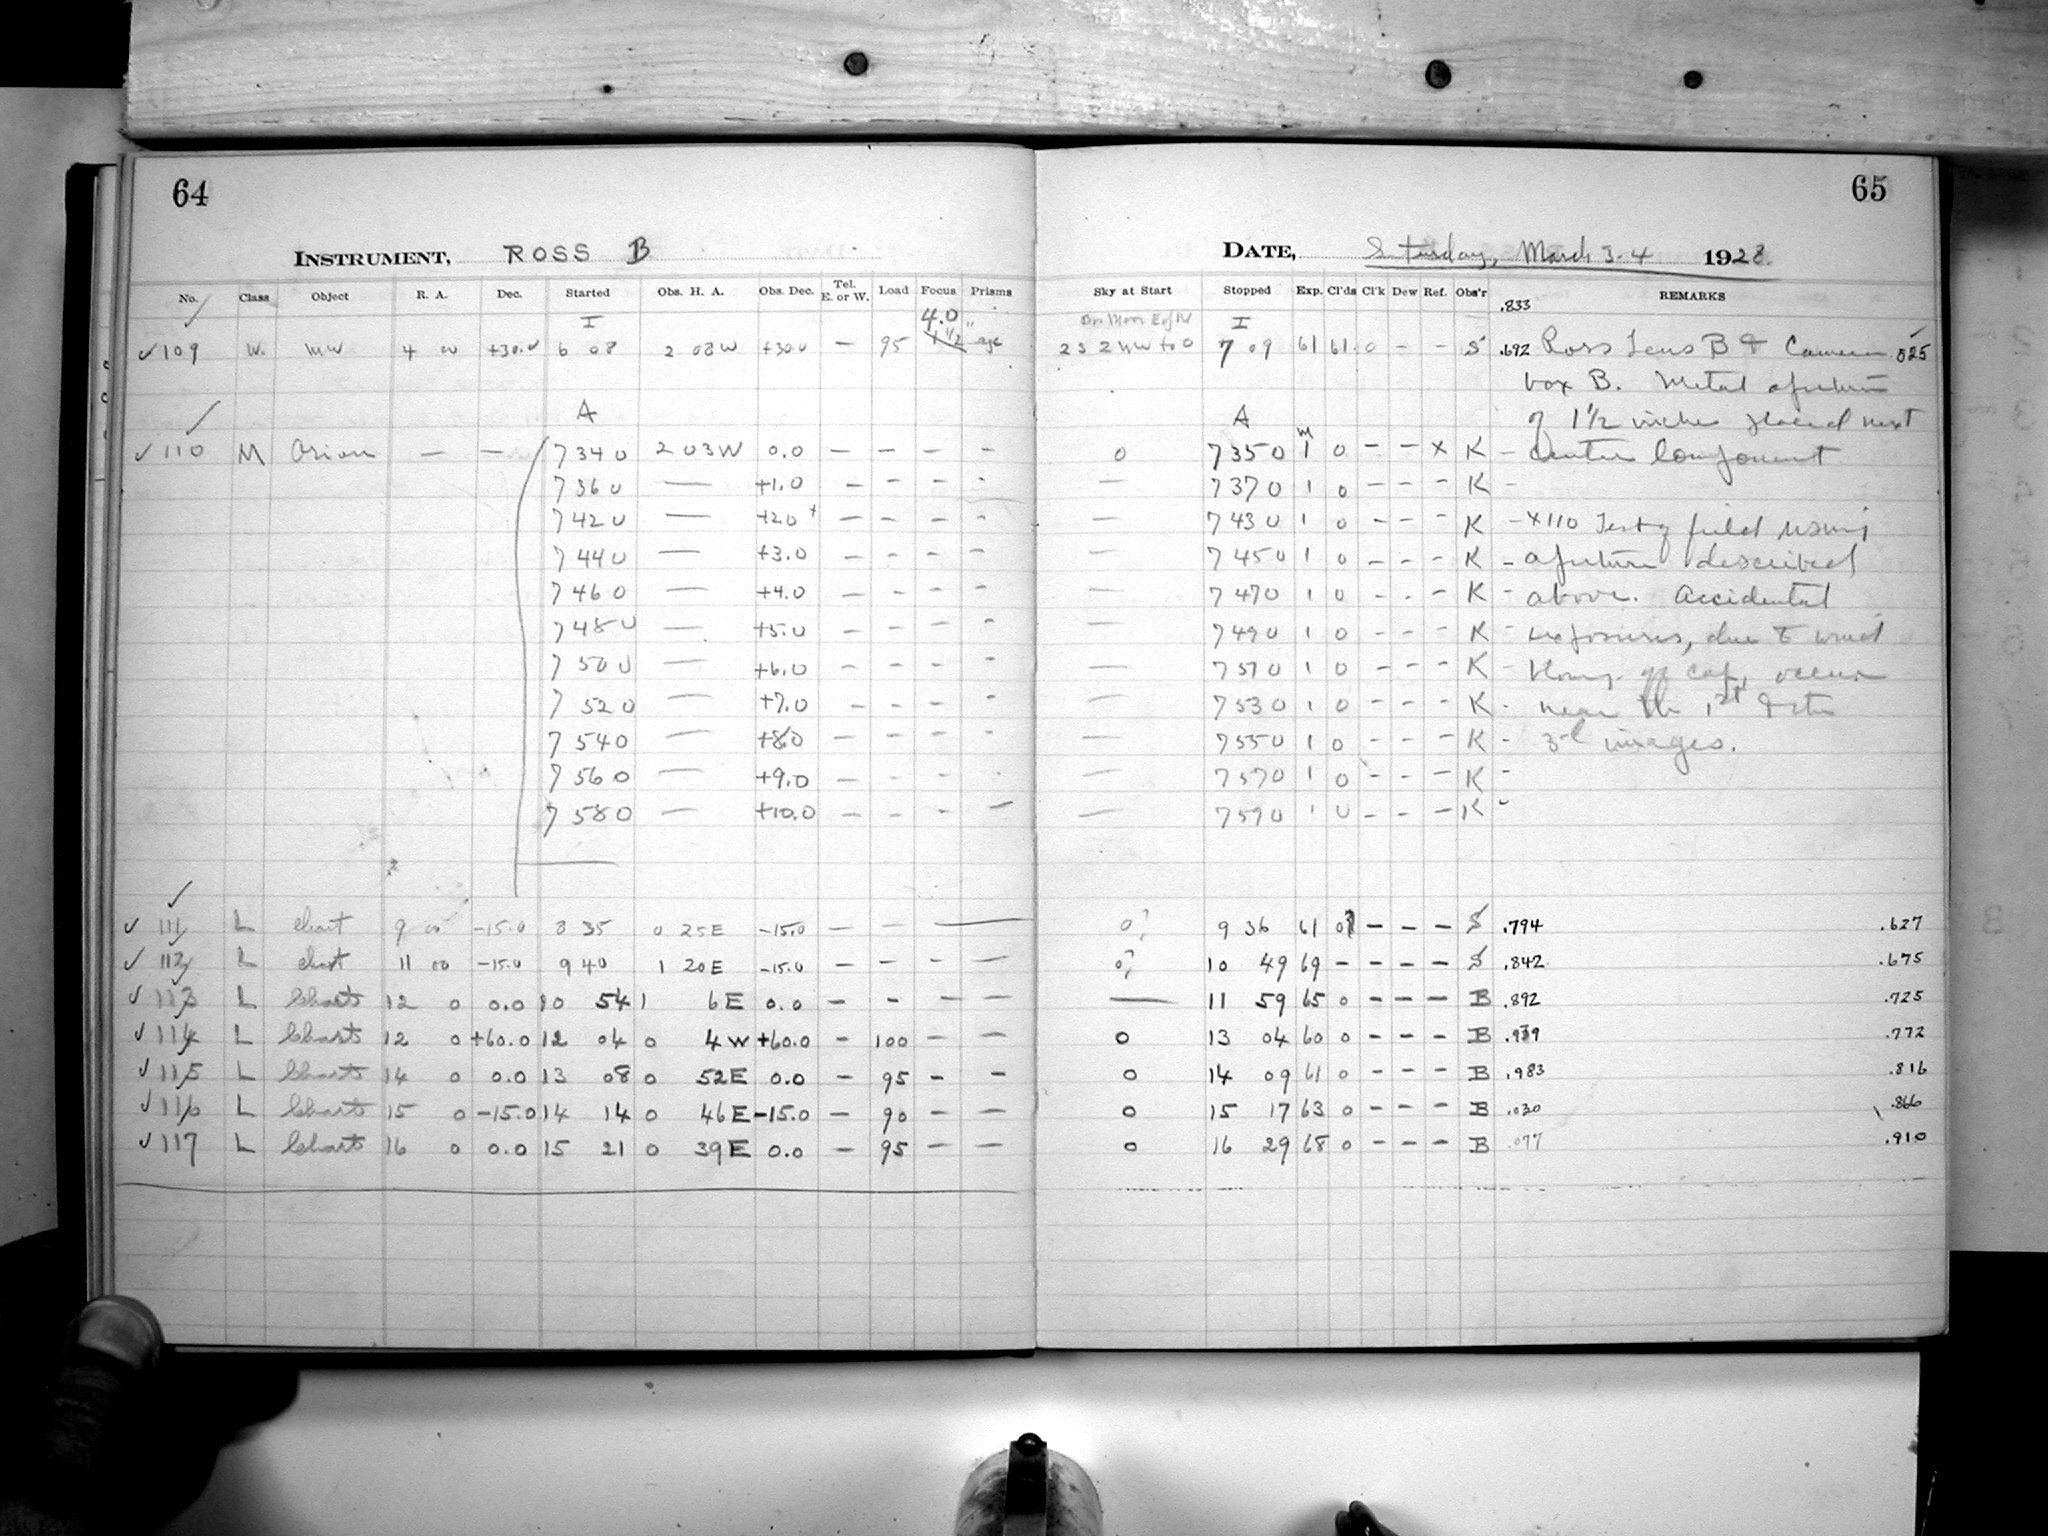 64
INSTRUMENT, ROSS B
No. Class Object R. A. Dec. Started Obs. H. A. Obs. Dec. Tel. E. or W. Load Focus Prisms
I 4.0
✓109 W. MW 4 00 +30.0 6 08 2 03 W +30.0 — 95 1 1/2"
A
✓110 M Orion — — 7 34 0 2 03 W 0.0 — — — —
7 36 0 — +1.0 — — — -
7 42 0 — +2.0 — — — -
7 44 0 — +3.0 — — — —
7 46 0 — +4.0 — — — -
7 48 0 — +5.0 — — — -
7 50 0 — +6.0 — — — -
7 52 0 — +7.0 — — — -
7 54 0 — +8.0 — — — -
7 56 0 — +9.0 — — — -
7 58 0 — +10.0 — — — —
✓ 111 L chart 9 00 -15.0 8 35 0 25 E -15.0 — — —
✓ 112 L chart 11 00 -15.0 9 40 1 20 E -15.0 — — — —
✓ 113 L Charts 12 0 0.0 10 54 1 6 E 0.0 — - — —
✓ 114 L Charts 12 0 +60.0 12 04 0 4 W +60.0 - 100 — —
✓ 115 L Charts 14 0 0.0 13 08 0 52 E 0.0 — 95 - —
✓ 116 L Charts 15 0 -15.0 14 14 0 46 E -15.0 — 90 — —
✓ 117 L Charts 16 0 0.0 15 21 0 39 E 0.0 — 95 — —
65
DATE, Saturday, March 3-4 1928.
Sky at Start Stopped Exp. Cl'ds Cl'k Dew Ref. Obs'r REMARKS
.833
I
7 09 61 61 0 - - S .692 Ross Lens B & Camera .525
box B. Metal aperture
A of 1 1/2 inches placed next
0 7 35 0 1m 0 — — x K - Center Component
— 7 37 0 1 0 - - - K -
— 7 43 0 1 0 - - - K - x110 Test of field using
— 7 45 0 1 0 - - - K - aperture described
— 7 47 0 1 0 - - - K - above. Accidental
— 7 49 0 1 0 - - - K - exposures, due to wind
— 7 51 0 1 0 - - - K - blowing off cap, occur
— 7 53 0 1 0 - - - K - near the 1st & the
— 7 55 0 1 0 - - - K - 3d images.
— 7 57 0 1 0 - - - K -
— 7 59 0 1 0 - - - K -
0? 9 36 61 0? — — — S .794 .627
0? 10 49 69 — — — — S .842 .675
— 11 59 65 0 — — — B .892 .725
0 13 04 60 0 - - - B .939 .772
0 14 09 61 0 - - - B .983 .816
0 15 17 63 0 - - - B .030 .866
0 16 29 68 0 - - - B .077 .910